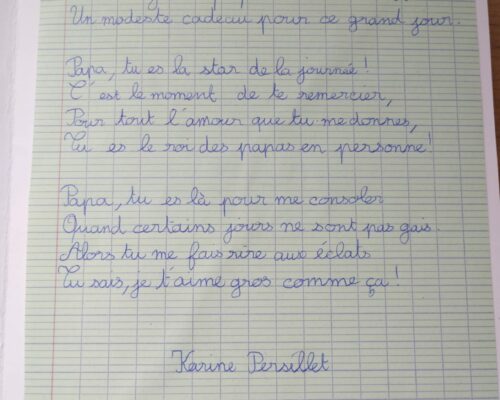 Un modeste cadeau pour ce grand jour.
Papa, tu es la star de la journée !
C'est le moment de te remercier,
Pour tout l'amour que tu me donnes,
Tu es le roi des papas en personne !
Papa, tu es là pour me consoler
Quand certains jours ne sont pas gais.
Alors tu me fais rire aux éclats
Tu sais, je t'aime gros comme ça !
Karine Persillet